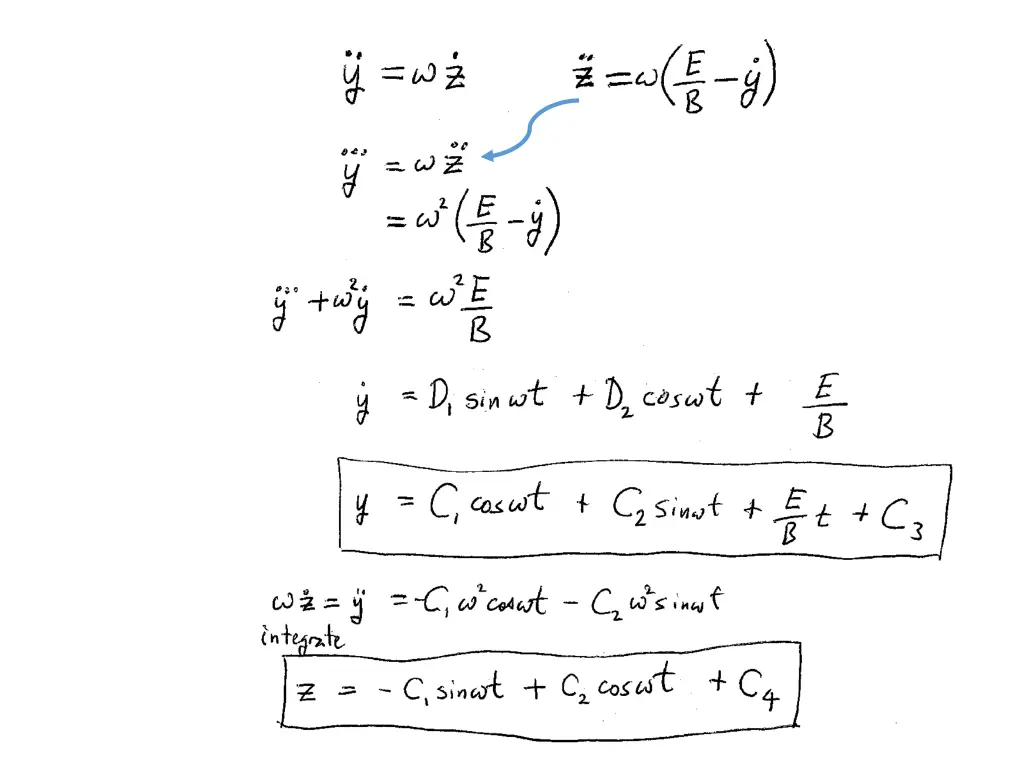 ÿ = ω ż z̈ = ω(E/B − ẏ)
y⃛ = ω z̈
= ω²(E/B − ẏ)
y⃛ + ω²ẏ = ω² E/B
ẏ = D₁ sin ωt + D₂ cos ωt + E/B
y = C₁ cos ωt + C₂ sin ωt + E/B t + C₃
ω ż = ÿ = −C₁ ω² cos ωt − C₂ ω² sin ωt
integrate
z = − C₁ sin ωt + C₂ cos ωt + C₄